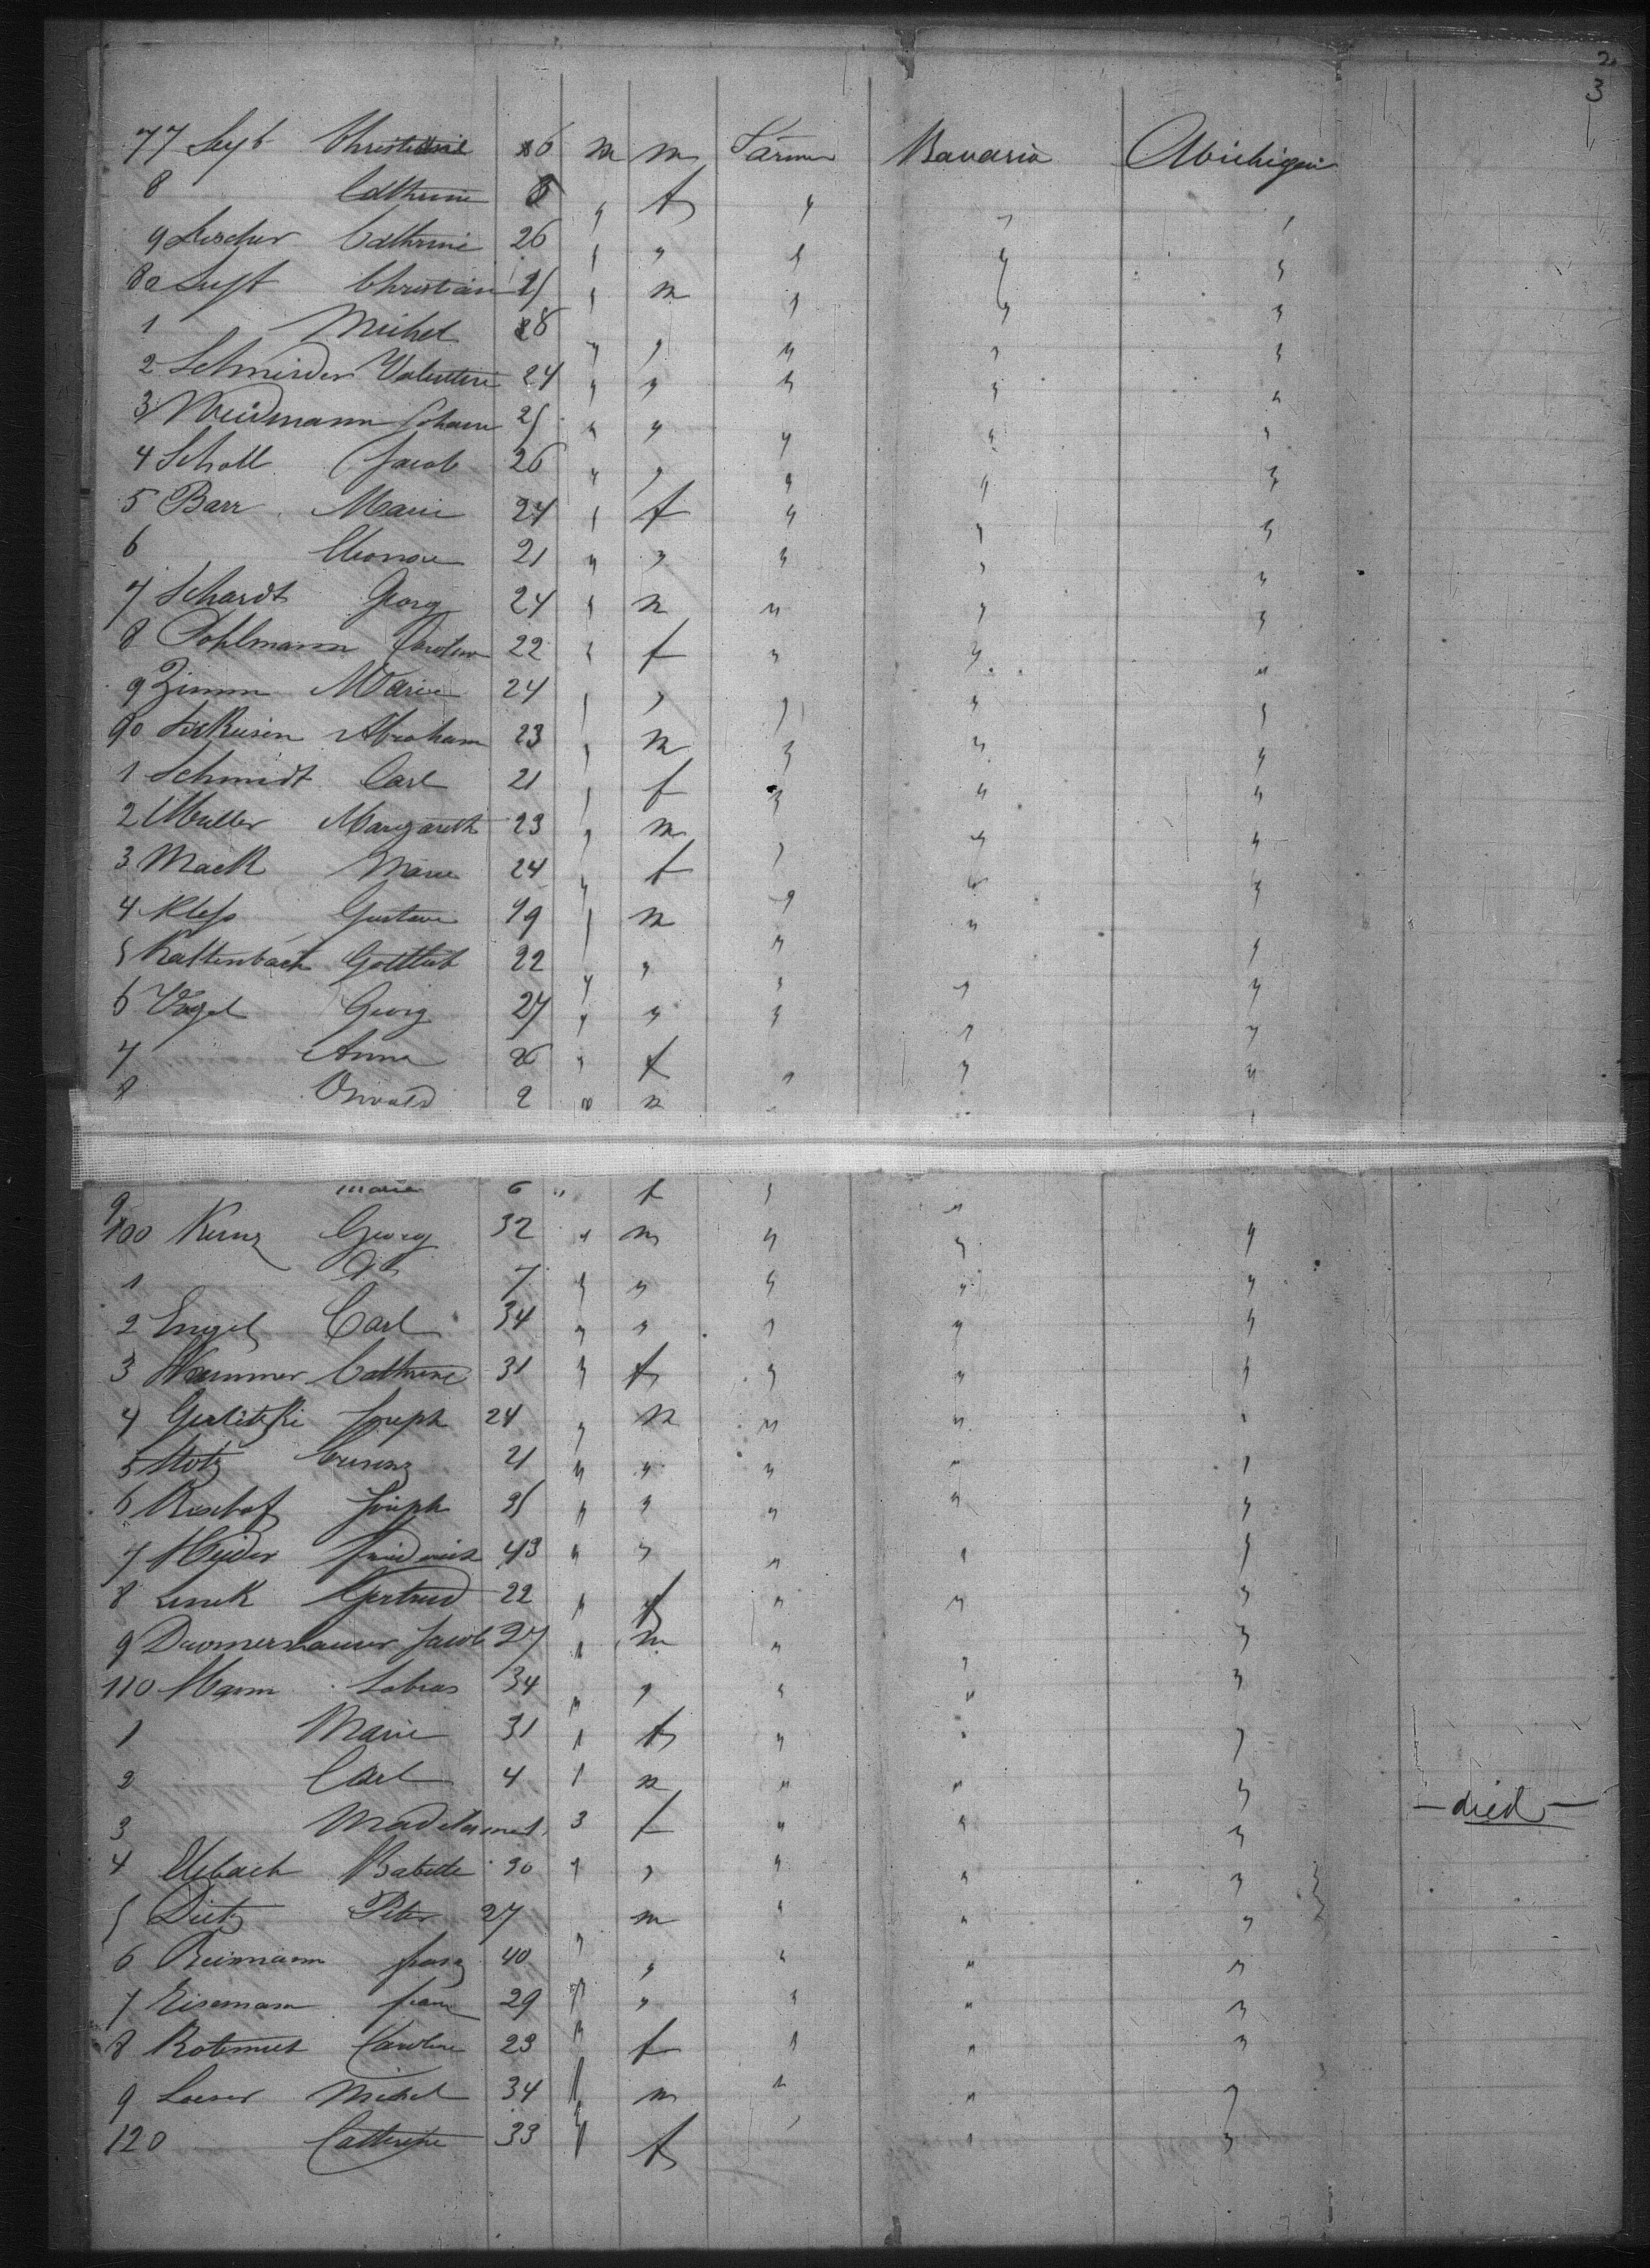 2
3
77 Seyb Christian 6 m m Farmer Bavaria Michigan
8 Cathrine 8 " f " " "
9 Lescher Cathrine 26 " " " " "
80 Luft Christian 25 " m " " "
1 Michel 28 " " " " "
2 Schneider Valentin 24 " " " " "
3 Weidmann Johann 25 " " " " "
4 Scholl Jacob 26 " " " " "
5 Barr Marie 24 " f " " "
6 Eleonore 21 " " " " "
7 Schardt Georg 24 " m " " "
8 Pohlmann Caroline 22 " f " " "
9 Zimm Marie 24 " " " " "
90 Abraham 23 " m " " "
1 Schmidt Carl 21 " f " " "
2 Muller Margareth 23 " m " " "
3 Mack Marie 24 " f " " "
4 Kless Gustave 19 " m " "
5 Kaltenbach Gottlieb 22 " " " " "
6 Vogel Georg 27 " " " " "
7 Anna 26 " f " " "
8 Oswald 2 " m " "
9 Marie 6 " f " "
100 Kunz Georg 32 " m " " "
1 7 " " " " "
2 Engel Carl 34 " " " " "
3 Wammer Cathrine 31 " f " " "
4 Gerlitzki Joseph 24 " m " " "
5 Motz 21 " " " " "
6 Joseph 25 " " " " "
7 Heider Friederich 43 " " " " "
8 Linck Gertrud 22 " f " " "
9 Jacob 27 " m " " "
110 Mann Tobias 34 " " " " "
1 Marie 31 " f " " "
2 Carl 4 " m " " "
3 3 f " " " — died —
4 Babette 30 " " " " "
5 Dietz Peter 27 m " " "
6 Reimann Franz 40 " " " " "
7 Eisemann 29 " " " " "
8 Caroline 23 " f " " "
9 Loeser Michel 34 " m " " "
120 Catherine 33 " f " " "